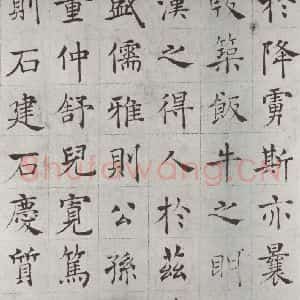 於降虜斯亦曩
版築飯牛之明
漢之得人於茲
盛儒雅則公孫
董仲舒兒寬篤
則石建石慶質
Shufawang.CN